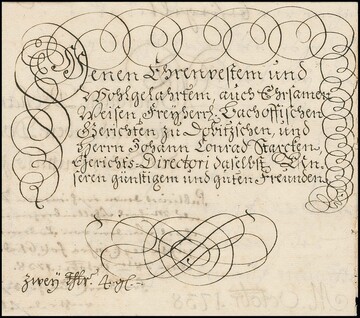 Denen Ehrenvestem und
Wohlgelahrtem, auch Ehrsamen
Weisen, Freyherrl. Bachoffischen
Gerichten zu Dobitzschen, und
Herrn Johann Conrad Starcken,
Gerichts-Directori daselbst, Un-
seren günstigem und guten Freunden.
zwey Thr. 4 gl.